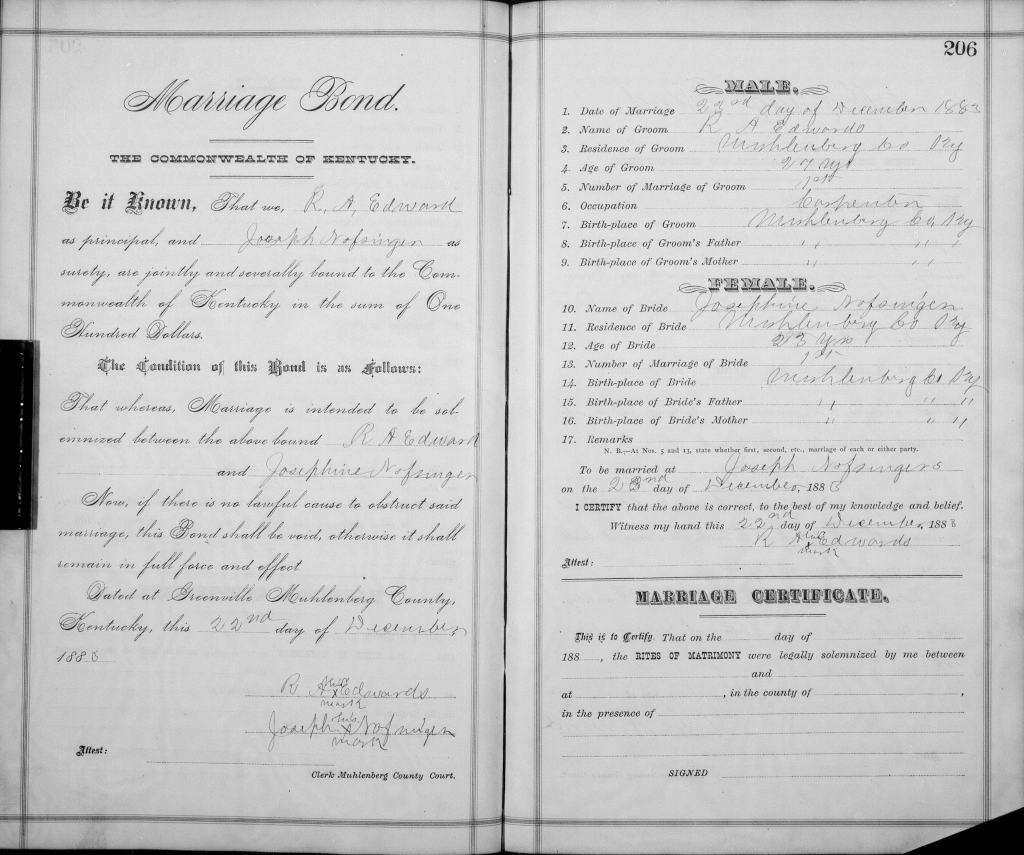 Marriage Bond.
THE COMMONWEALTH OF KENTUCKY.
Be it Known, That we, R, A, Edward
as principal, and Joseph Nofsinger as
surety, are jointly and severally bound to the Com-
monwealth of Kentucky in the sum of One
Hundred Dollars.
The Condition of this Bond is as Follows:
That whereas, Marriage is intended to be sol-
emnized between the above bound R A Edward
and Josephine Nofsinger
Now, if there is no lawful cause to obstruct said
marriage, this Bond shall be void, otherwise it shall
remain in full force and effect
Dated at Greenville Muhlenberg County,
Kentucky, this 22nd day of December
1883
his
R A x Edwards
mark
his
Joseph x Nofsinger
mark
Attest:
Clerk Muhlenberg County Court.
206
MALE.
1. Date of Marriage 23rd day of December 1883
2. Name of Groom R A Edwards
3. Residence of Groom Muhlenberg Co Ky
4. Age of Groom 27 yrs
5. Number of Marriage of Groom 1st
6. Occupation Carpenter
7. Birth-place of Groom Muhlenberg Co, Ky
8. Birth-place of Groom's Father " " "
9. Birth-place of Groom's Mother " " "
FEMALE.
10. Name of Bride Josephine Nofsinger
11. Residence of Bride Muhlenberg Co Ky
12. Age of Bride 23 yrs
13. Number of Marriage of Bride 1st
14. Birth-place of Bride Muhlenberg Co Ky
15. Birth-place of Bride's Father " " "
16. Birth-place of Bride's Mother " " "
17. Remarks
N. B.—At Nos. 5 and 13, state whether first, second, etc., marriage of each or either party.
To be married at Joseph Nofsingers
on the day of December, 1883
I CERTIFY that the above is correct, to the best of my knowledge and belief.
Witness my hand this 22nd day of December, 1883
his
R A x Edwards
mark
Attest:
MARRIAGE CERTIFICATE.
This is to Certify. That on the day of
188 , the RITES OF MATRIMONY were legally solemnized by me between
and
at , in the county of ,
in the presence of
SIGNED